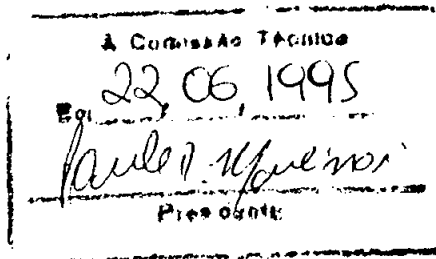 À Comissão Técnica
Em 22, 06, 1995
Presidente